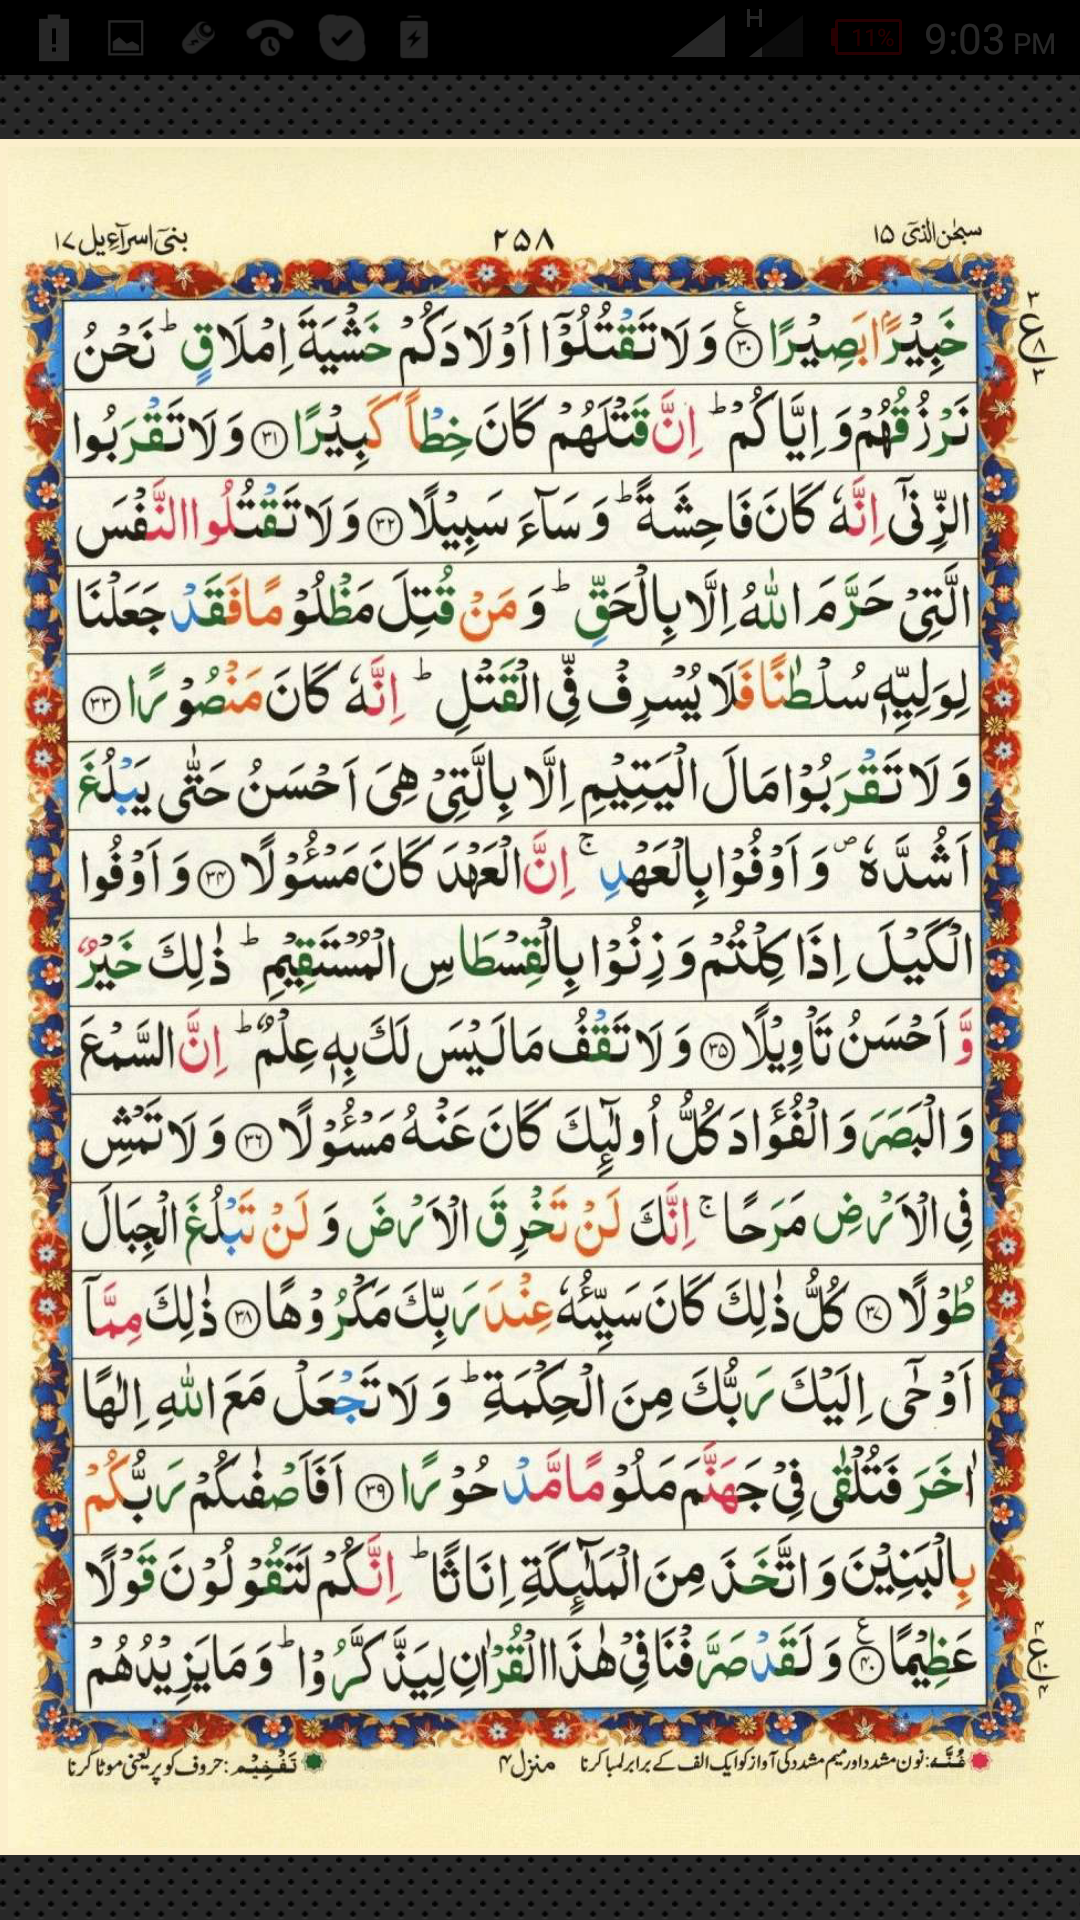 H 11% 9:03 PM
سبحٰن الذی ۱۵ ۲۵۸ بنیٓ اسرآءیل ۱۷
خَبِیْرًۢا بَصِیْرًا ﴿۳۰﴾ ع وَ لَا تَقْتُلُوْۤا اَوْلَادَكُمْ خَشْیَةَ اِمْلَاقٍ ؕ نَحْنُ
۳ ع ۸ ۳
نَرْزُقُهُمْ وَ اِیَّاكُمْ ؕ اِنَّ قَتْلَهُمْ كَانَ خِطْاً كَبِیْرًا ﴿۳۱﴾ وَ لَا تَقْرَبُوا
الزِّنٰۤی اِنَّهٗ كَانَ فَاحِشَةً ؕ وَ سَآءَ سَبِیْلًا ﴿۳۲﴾ وَ لَا تَقْتُلُوا النَّفْسَ
الَّتِیْ حَرَّمَ اللّٰهُ اِلَّا بِالْحَقِّ ؕ وَ مَنْ قُتِلَ مَظْلُوْمًا فَقَدْ جَعَلْنَا
لِوَلِیِّهٖ سُلْطٰنًا فَلَا یُسْرِفْ فِّی الْقَتْلِ ؕ اِنَّهٗ كَانَ مَنْصُوْرًا ﴿۳۳﴾
وَ لَا تَقْرَبُوْا مَالَ الْیَتِیْمِ اِلَّا بِالَّتِیْ هِیَ اَحْسَنُ حَتّٰی یَبْلُغَ
اَشُدَّهٗ ۪ وَ اَوْفُوْا بِالْعَهْدِ ۚ اِنَّ الْعَهْدَ كَانَ مَسْـُٔوْلًا ﴿۳۴﴾ وَ اَوْفُوا
الْكَیْلَ اِذَا كِلْتُمْ وَ زِنُوْا بِالْقِسْطَاسِ الْمُسْتَقِیْمِ ؕ ذٰلِكَ خَیْرٌ
وَّ اَحْسَنُ تَاْوِیْلًا ﴿۳۵﴾ وَ لَا تَقْفُ مَا لَیْسَ لَكَ بِهٖ عِلْمٌ ؕ اِنَّ السَّمْعَ
وَ الْبَصَرَ وَ الْفُؤَادَ كُلُّ اُولٰٓىِٕكَ كَانَ عَنْهُ مَسْـُٔوْلًا ﴿۳۶﴾ وَ لَا تَمْشِ
فِی الْاَرْضِ مَرَحًا ۚ اِنَّكَ لَنْ تَخْرِقَ الْاَرْضَ وَ لَنْ تَبْلُغَ الْجِبَالَ
طُوْلًا ﴿۳۷﴾ كُلُّ ذٰلِكَ كَانَ سَیِّئُهٗ عِنْدَ رَبِّكَ مَكْرُوْهًا ﴿۳۸﴾ ذٰلِكَ مِمَّاۤ
اَوْحٰۤی اِلَیْكَ رَبُّكَ مِنَ الْحِكْمَةِ ؕ وَ لَا تَجْعَلْ مَعَ اللّٰهِ اِلٰهًا
اٰخَرَ فَتُلْقٰی فِیْ جَهَنَّمَ مَلُوْمًا مَّدْحُوْرًا ﴿۳۹﴾ اَفَاَصْفٰىكُمْ رَبُّكُمْ
بِالْبَنِیْنَ وَ اتَّخَذَ مِنَ الْمَلٰٓىِٕكَةِ اِنَاثًا ؕ اِنَّكُمْ لَتَقُوْلُوْنَ قَوْلًا
عَظِیْمًا ﴿۴۰﴾ ع وَ لَقَدْ صَرَّفْنَا فِیْ هٰذَا الْقُرْاٰنِ لِیَذَّكَّرُوْا ؕ وَ مَا یَزِیْدُهُمْ
ع ۱۰ ۴
غُنَّه: نون مشدد اور میم مشدد کی آواز کو ایک الف کے برابر لمبا کرنا منزل ۴ تَفْخِیْم: حروف کو پر یعنی موٹا کرنا